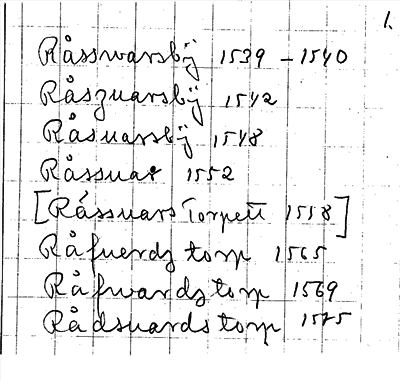 1.
Råsswarsbÿ 1539 – 1540
Råszuarsbÿ 1542
Råsuarsbÿ 1548
Råssuar 1552
[Råssuars Torpett 1558]
Råfuerdz torp 1565
Råfwardz torp 1569
Rådsuards torp 1575